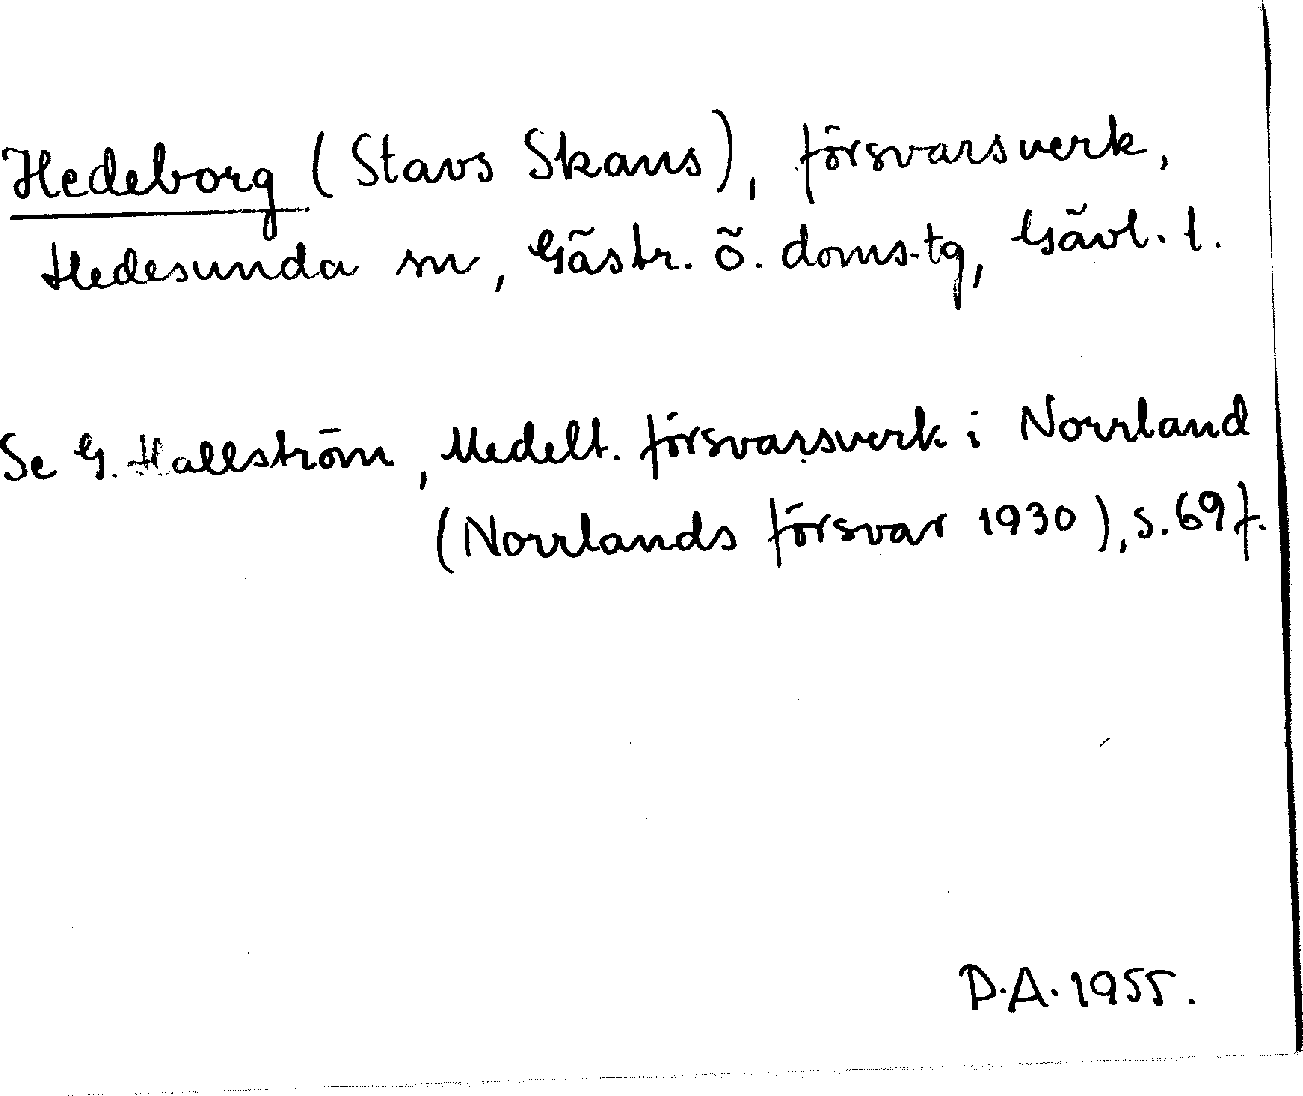 Hedeborg (Stavs Skans), försvarsverk,
Hedesunda sn, Gästr. ö. doms.tg, Gävl. l.
Se G. Hallström, Medelt. försvarsverk i Norrland
(Norrlands försvar 1930), s. 69 f.
D.A. 1955.